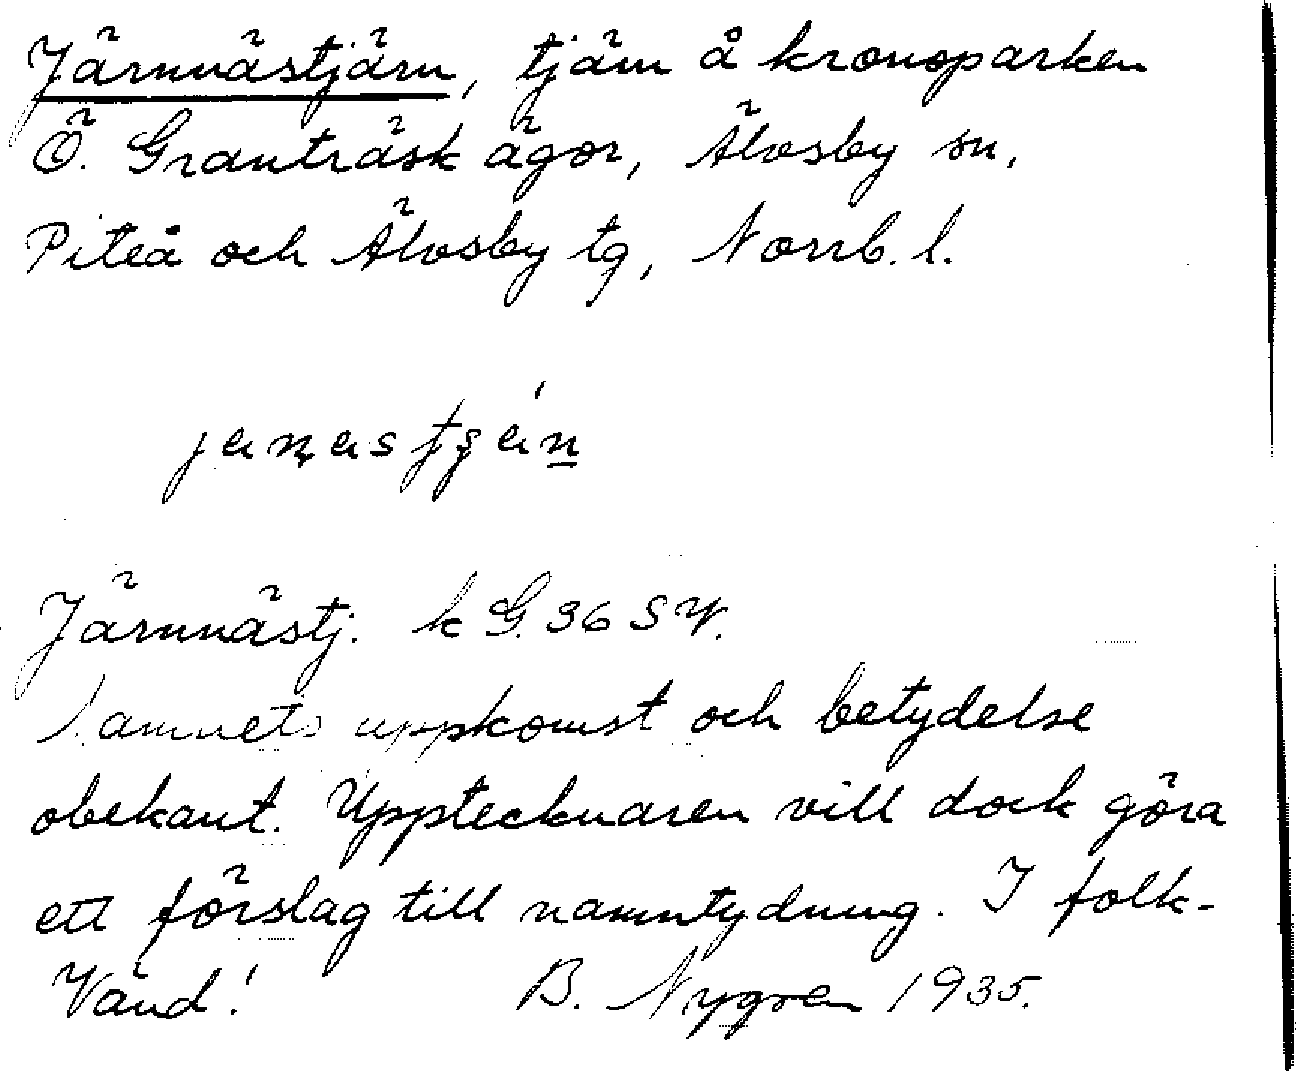 Järnnästjärn, tjärn å kronoparken
Ö. Granträsk ägor, Älvsby sn,
Piteå och Älvsby tg, Norrb. l.
Järnnästj. k G. 36 SV.
Namnets uppkomst och betydelse
obekant. Upptecknaren vill dock göra
ett förslag till namntydning. I folk-
Vänd! B. Nygren 1935.